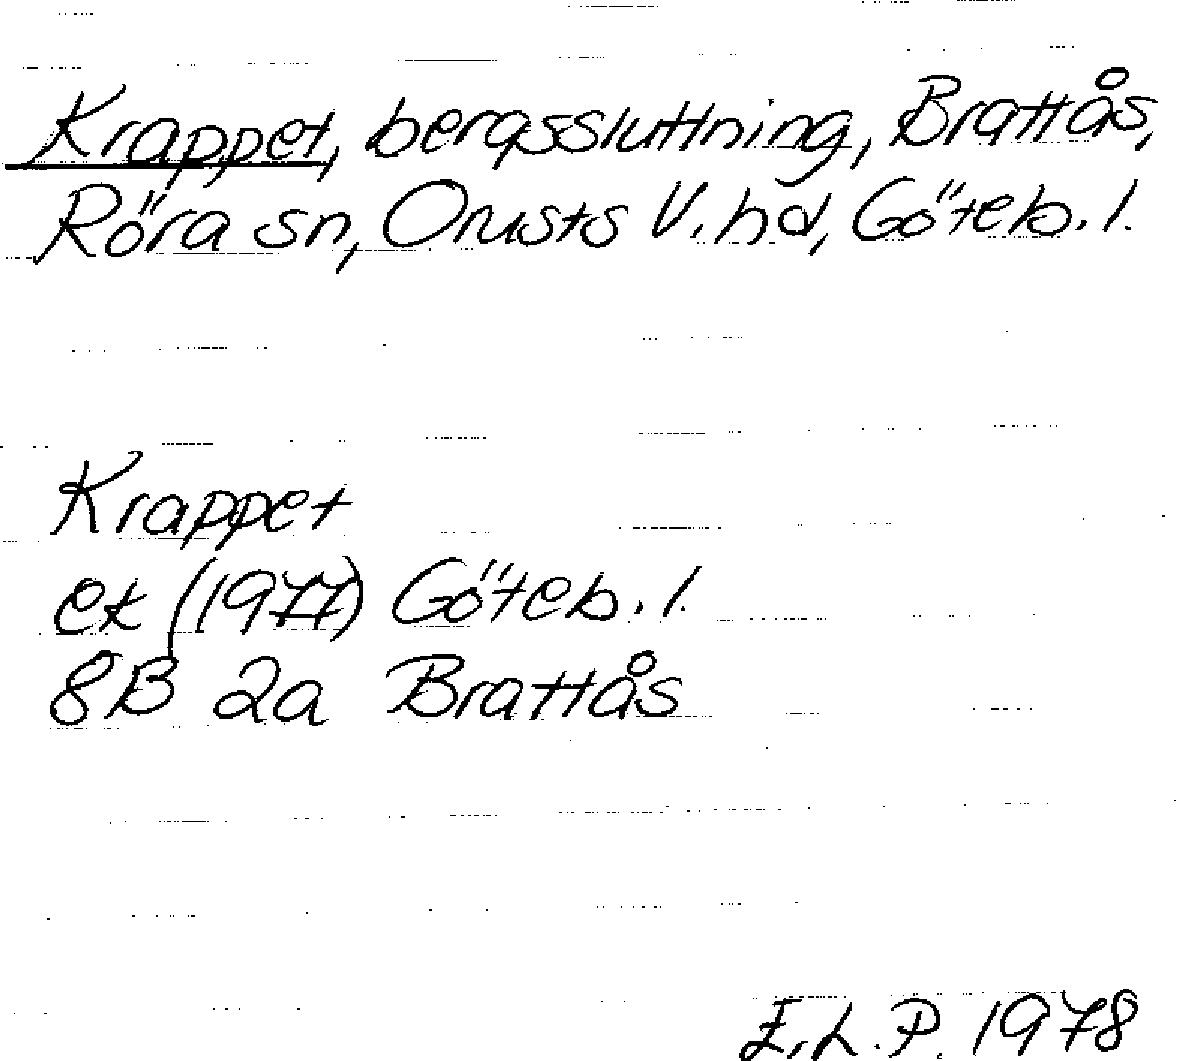 Krappet, bergssluttning, Brattås,
Röra sn, Orusts V. hd, Göteb. l.
Krappet
ek (1977) Göteb. l.
8B 2a Brattås
E.L.P. 1978